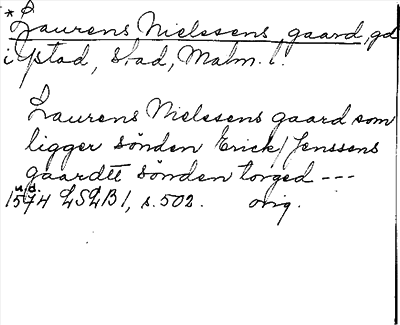 * Laurens Nielssens gaard, gd
i Ystad, stad, Malm. l.
Laurens Nielssens gaard som
ligger sönden Erick Jenssens
gaardtt sönden torged ---
u.d.
1574 LSLB 1, s. 502. orig.